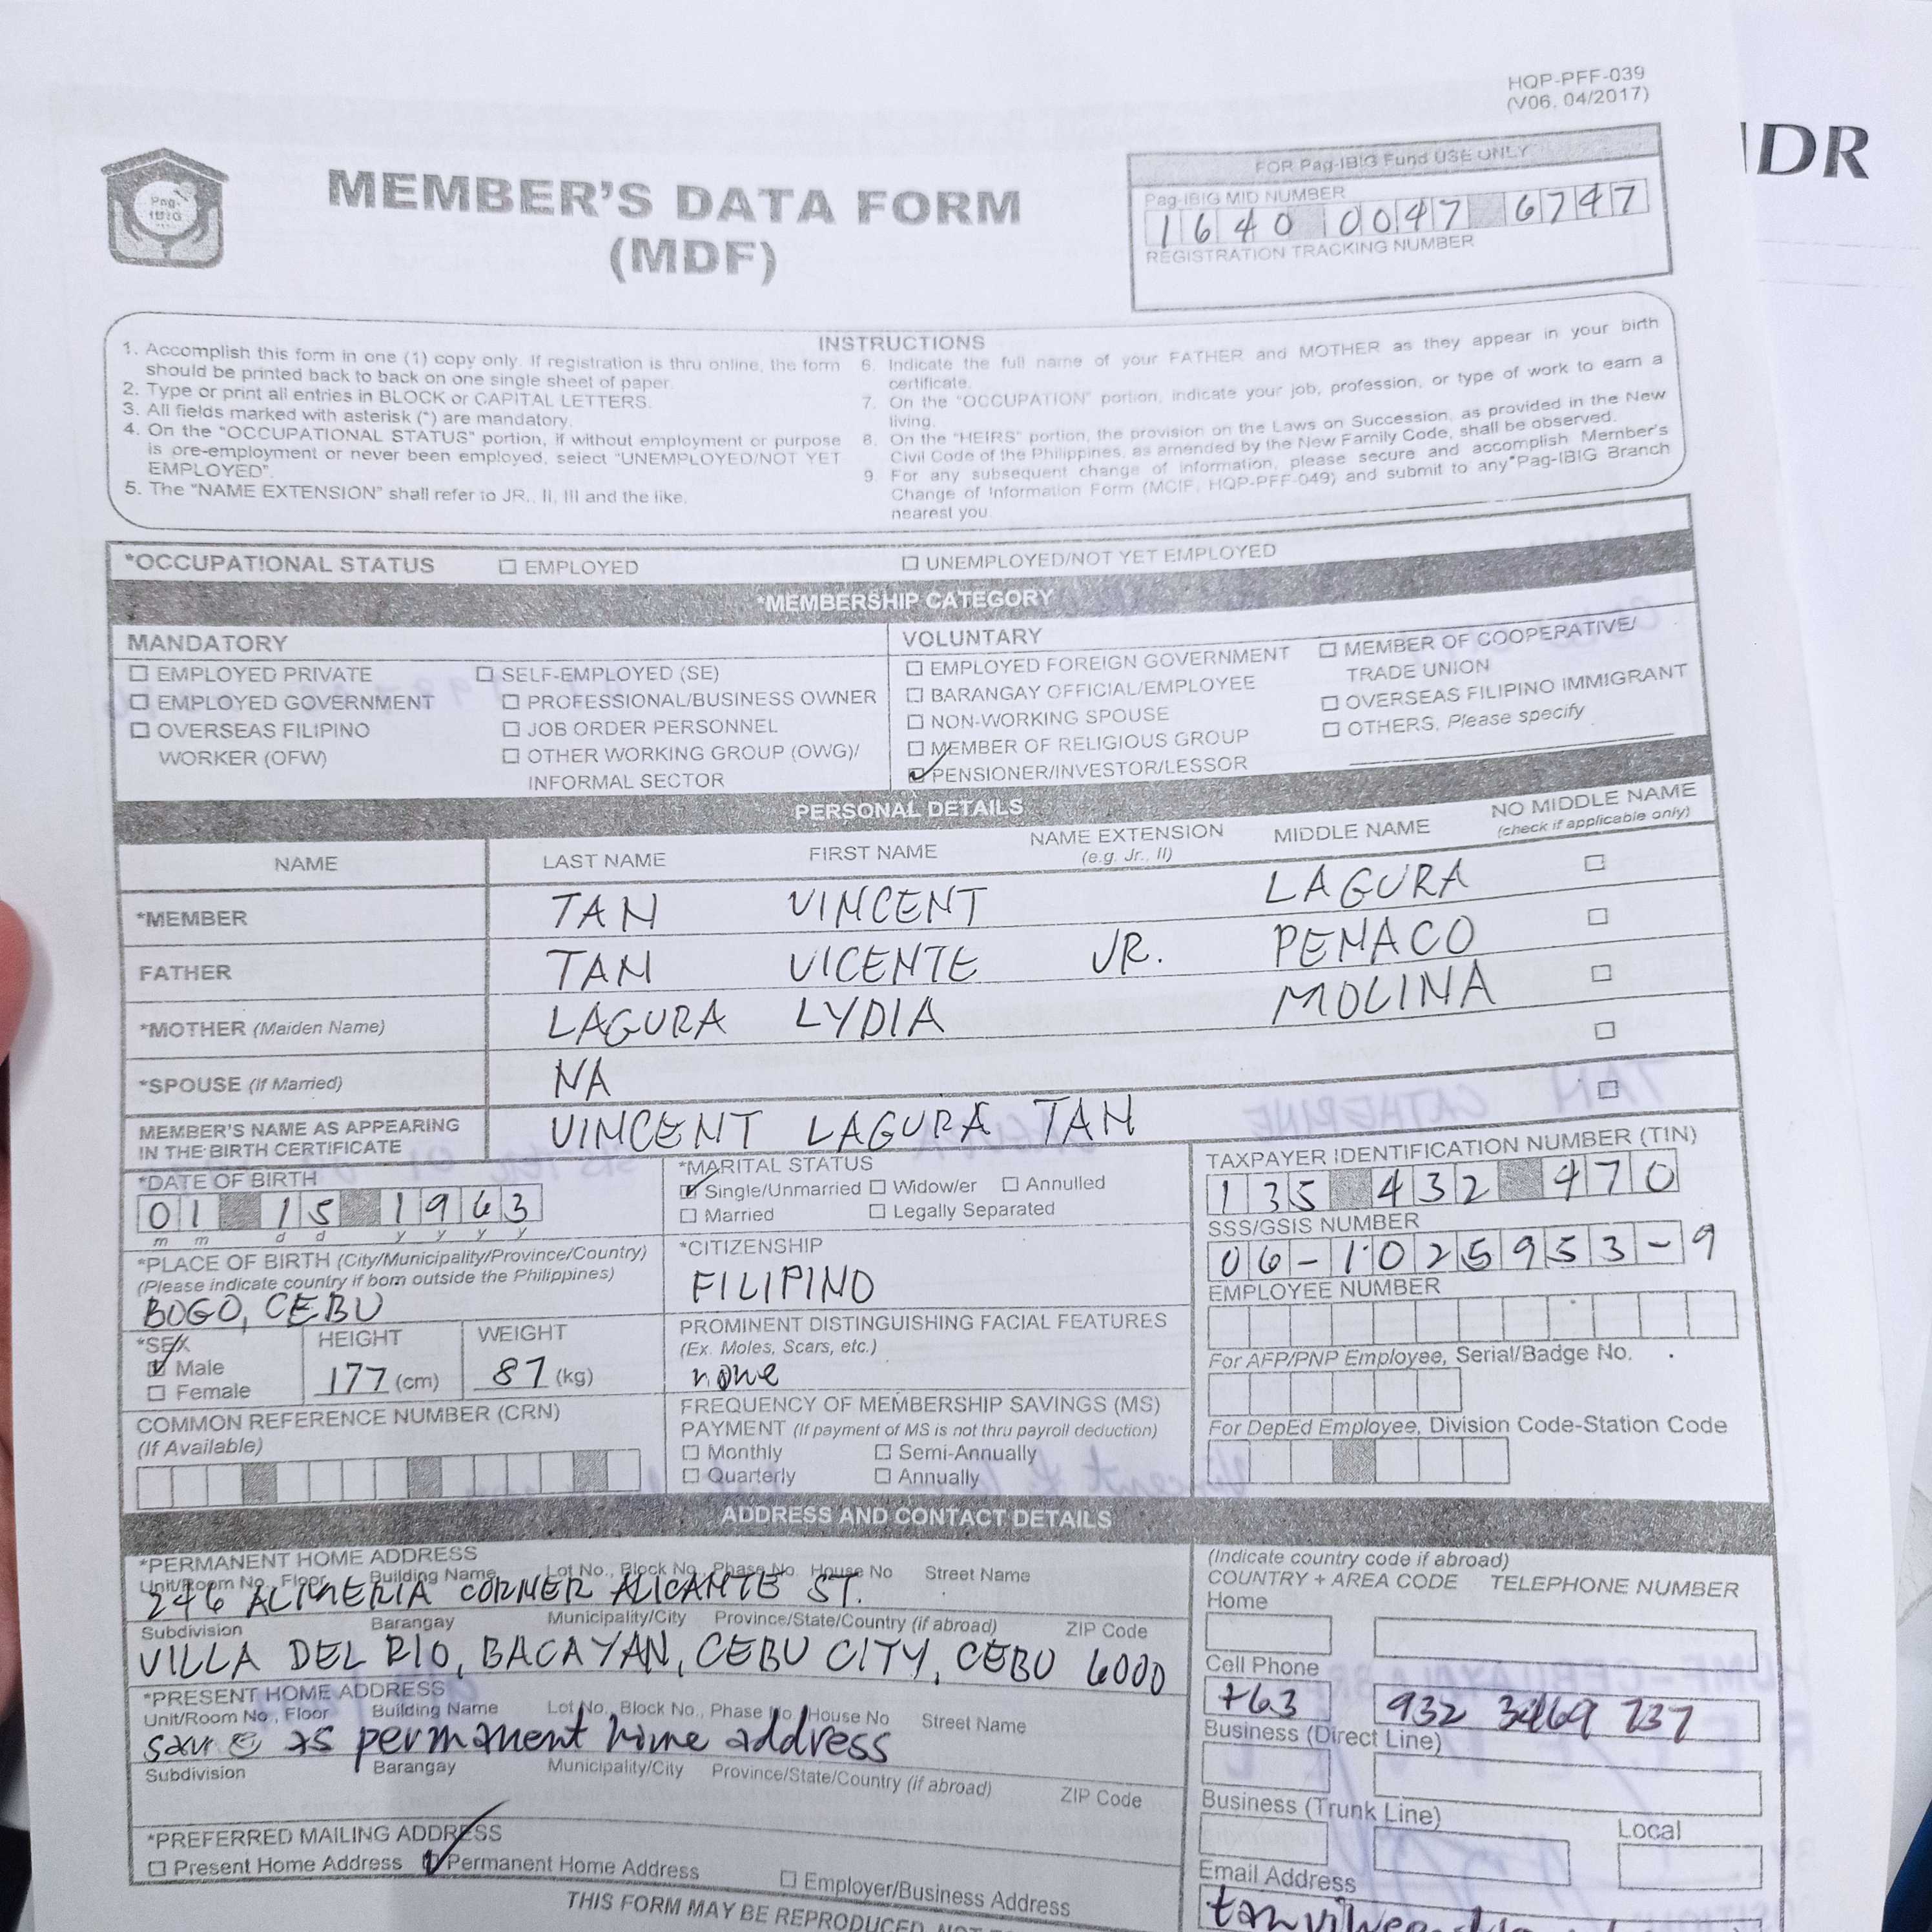 HQP-PFF-039
(V06, 04/2017)
IDR
Pag-IBIG
MEMBER'S DATA FORM
(MDF)
FOR Pag-IBIG Fund USE ONLY
Pag-IBIG MID NUMBER
1640 0047 6747
REGISTRATION TRACKING NUMBER
INSTRUCTIONS
1. Accomplish this form in one (1) copy only. If registration is thru online, the form
should be printed back to back on one single sheet of paper.
2. Type or print all entries in BLOCK or CAPITAL LETTERS.
3. All fields marked with asterisk (*) are mandatory.
4. On the "OCCUPATIONAL STATUS" portion, if without employment or purpose
is pre-employment or never been employed, select "UNEMPLOYED/NOT YET
EMPLOYED".
5. The "NAME EXTENSION" shall refer to JR., II, III and the like.
6. Indicate the full name of your FATHER and MOTHER as they appear in your birth
certificate.
7. On the "OCCUPATION" portion, indicate your job, profession, or type of work to earn a
living.
8. On the "HEIRS" portion, the provision on the Laws on Succession, as provided in the New
Civil Code of the Philippines, as amended by the New Family Code, shall be observed.
9. For any subsequent change of information, please secure and accomplish Member's
Change of Information Form (MCIF, HQP-PFF-049) and submit to any Pag-IBIG Branch
nearest you.
*OCCUPATIONAL STATUS EMPLOYED UNEMPLOYED/NOT YET EMPLOYED
*MEMBERSHIP CATEGORY
MANDATORY
EMPLOYED PRIVATE SELF-EMPLOYED (SE)
EMPLOYED GOVERNMENT PROFESSIONAL/BUSINESS OWNER
OVERSEAS FILIPINO JOB ORDER PERSONNEL
WORKER (OFW) OTHER WORKING GROUP (OWG)/
INFORMAL SECTOR
VOLUNTARY
EMPLOYED FOREIGN GOVERNMENT MEMBER OF COOPERATIVE/
BARANGAY OFFICIAL/EMPLOYEE TRADE UNION
NON-WORKING SPOUSE OVERSEAS FILIPINO IMMIGRANT
MEMBER OF RELIGIOUS GROUP OTHERS, Please specify
PENSIONER/INVESTOR/LESSOR
PERSONAL DETAILS
NAME LAST NAME FIRST NAME NAME EXTENSION MIDDLE NAME NO MIDDLE NAME
(e.g. Jr., II) (check if applicable only)
*MEMBER TAN VINCENT LAGURA
FATHER TAN VICENTE JR. PENACO
*MOTHER (Maiden Name) LAGURA LYDIA MOLINA
*SPOUSE (If Married) NA
MEMBER'S NAME AS APPEARING
IN THE BIRTH CERTIFICATE VINCENT LAGURA TAN
*DATE OF BIRTH
01 15 1963
m m d d y y y
*PLACE OF BIRTH (City/Municipality/Province/Country)
(Please indicate country if born outside the Philippines)
BOGO, CEBU
*SEX HEIGHT WEIGHT
Male 177 (cm) 87 (kg)
Female
COMMON REFERENCE NUMBER (CRN)
(If Available)
*MARITAL STATUS
Single/Unmarried Widow/er Annulled
Married Legally Separated
*CITIZENSHIP
FILIPINO
PROMINENT DISTINGUISHING FACIAL FEATURES
(Ex. Moles, Scars, etc.)
none
FREQUENCY OF MEMBERSHIP SAVINGS (MS)
PAYMENT (If payment of MS is not thru payroll deduction)
Monthly Semi-Annually
Quarterly Annually
TAXPAYER IDENTIFICATION NUMBER (TIN)
135 432 470
SSS/GSIS NUMBER
06-1025953-9
EMPLOYEE NUMBER
For AFP/PNP Employee, Serial/Badge No.
For DepEd Employee, Division Code-Station Code
ADDRESS AND CONTACT DETAILS
*PERMANENT HOME ADDRESS
Unit/Room No., Floor Building Name Lot No., Block No., Phase No. House No Street Name
246 ALMERIA CORNER ALICANTE ST.
Subdivision Barangay Municipality/City Province/State/Country (if abroad) ZIP Code
VILLA DEL RIO, BACAYAN, CEBU CITY, CEBU 6000
*PRESENT HOME ADDRESS
Unit/Room No., Floor Building Name Lot No., Block No., Phase No. House No Street Name
as permanent home address
Subdivision Barangay Municipality/City Province/State/Country (if abroad) ZIP Code
*PREFERRED MAILING ADDRESS
Present Home Address Permanent Home Address Employer/Business Address
(Indicate country code if abroad)
COUNTRY + AREA CODE TELEPHONE NUMBER
Home
Cell Phone
+63 932 3469 737
Business (Direct Line)
Business (Trunk Line) Local
Email Address
THIS FORM MAY BE REPRODUCED.